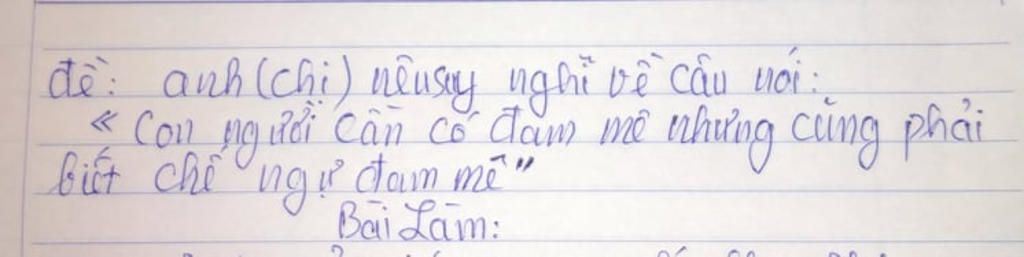 đề: anh (chi) nêu suy nghĩ về câu nói:
"Con người cần có đam mê nhưng cũng phải
biết chế ngự đam mê"
Bài Làm: